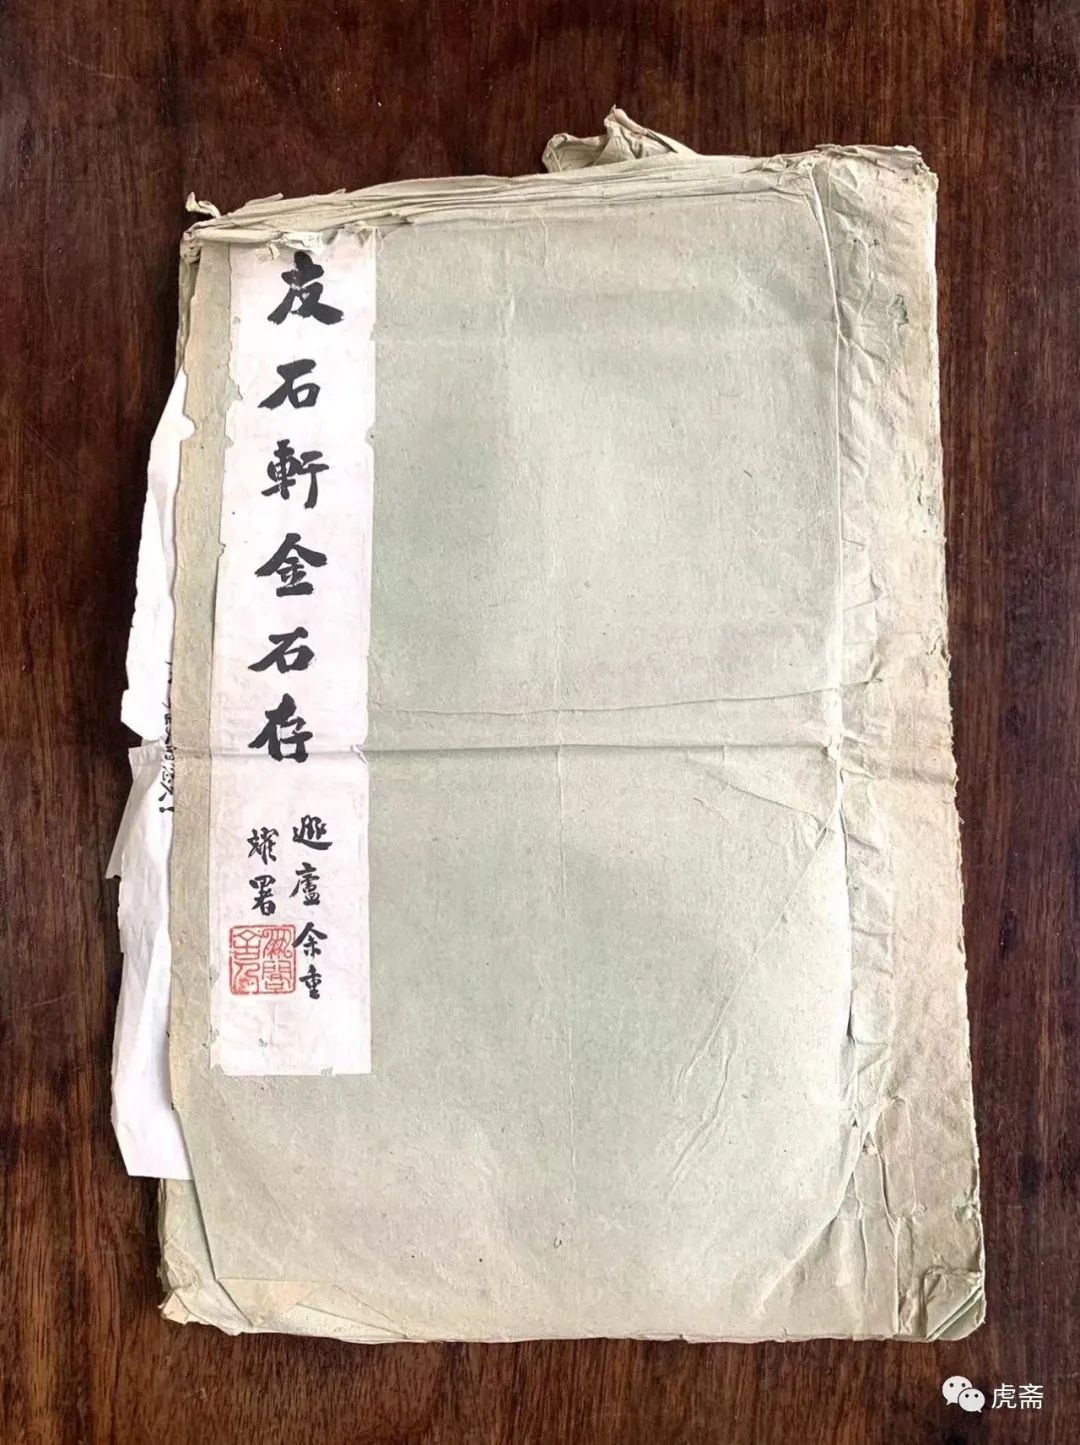 友石軒金石存
遯廬余重
耀署
虎斋